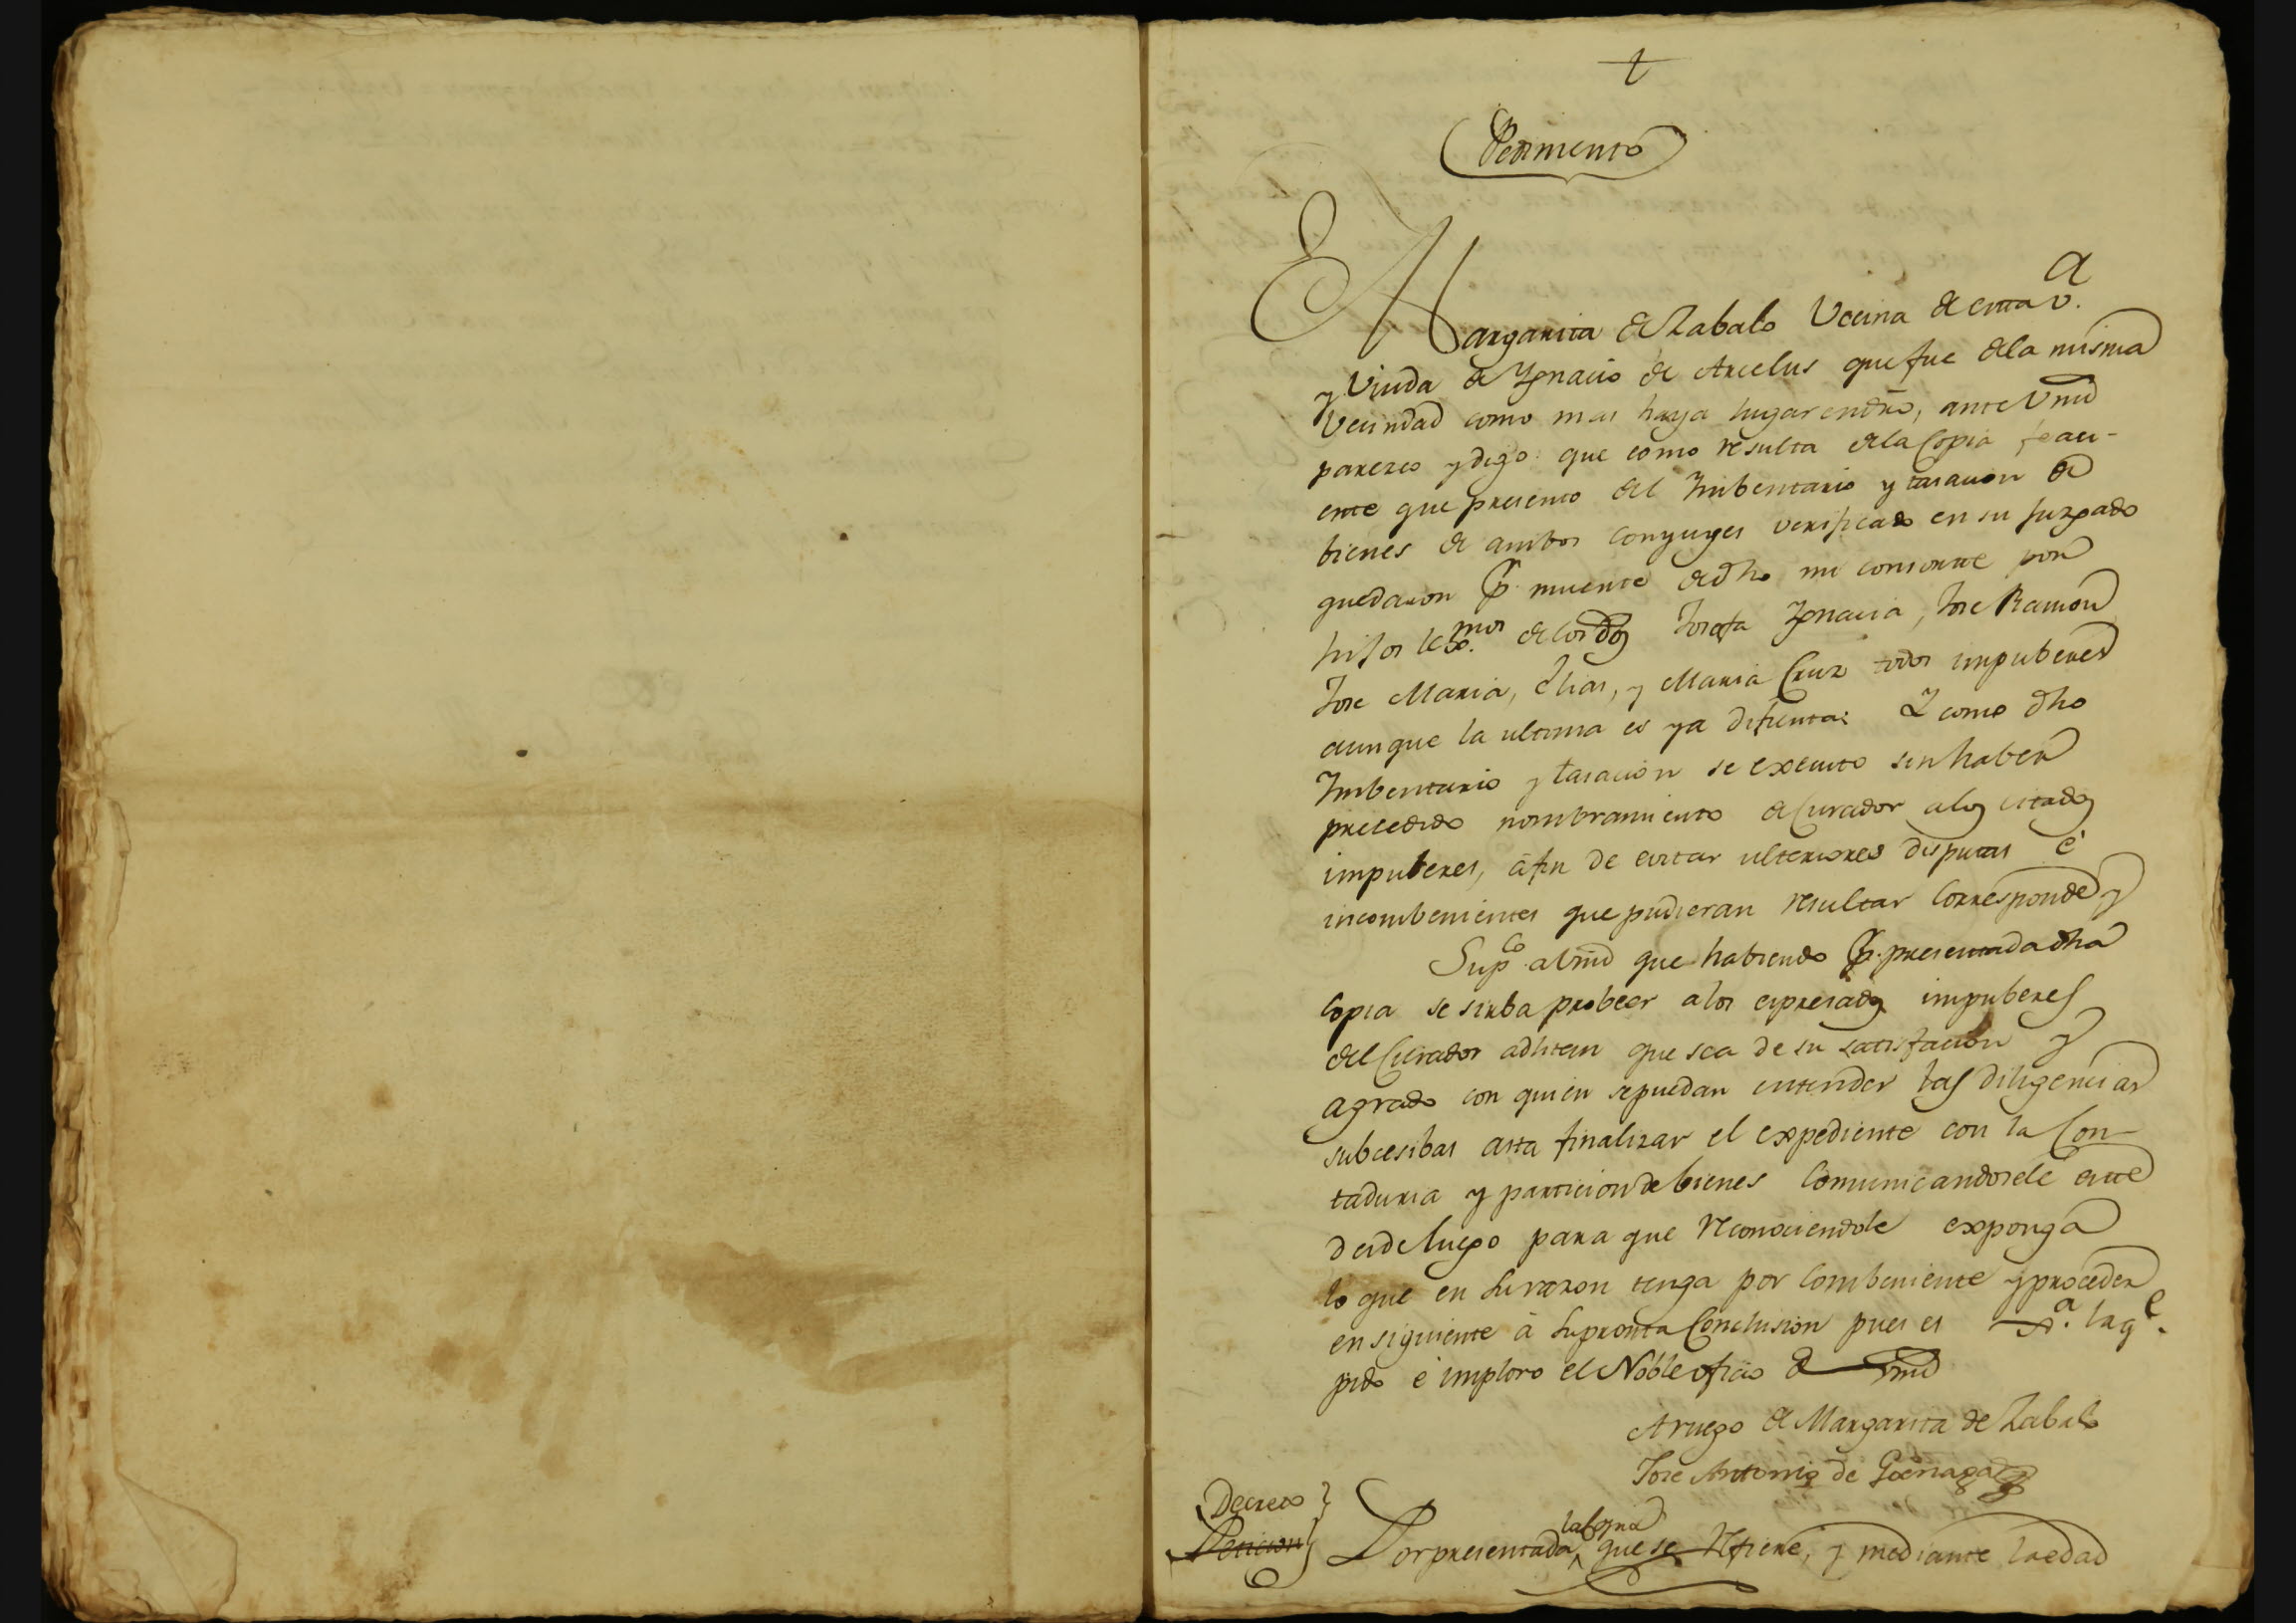 Pedimento
Margarita de Zabalo Vecina de esta v.ª
y Viuda de Ygnacio de Arcelus que fue dela misma
Vecindad como mas haya lugar en dro, ante Vmd
parezco y digo: que como resulta dela Copia feaci-
ente que presento del Imbentario y tasacion de
bienes de ambos conyuges verificado en su Juzgado
quedaron Pr. muerte de dho mi consorte por
hijos legmos. de los dos Josefa Ygnacia, Jose Ramon
Jose Maria, Elias, y Maria Cruz todos impuberes
aunque la ultima es ya difunta: Y como dho
Imbentario y tasacion se executo sin haber
precedido nombramiento de Curador alos citados
impuberes, á fin de evitar ulteriores disputas é
incombenientes que pudieran resultar Corresponde y
Supco. a Vmd que habiendo Pr. presentada dha
Copia se sirba probeer alos expresados impuberes
del Curador adlitem que sea de su satisfacion y
agrado con quien se puedan entender las diligencias
subcesibas asta finalizar el expediente con la Con-
taduria y particion de bienes Comunicandosele este
desde luego para que reconociendole exponga
lo que en su razon tenga por Combeniente y proceder
en siguiente á su pronta Conclusion pues es Jª. la qe.
pido é imploro el Noble oficio de Vmd
A ruego de Margarita de Zabalo
Jose Antonio de Goenaga
Decreto
Peticion
Por presentada la Copia que se refiere, y mediante la edad